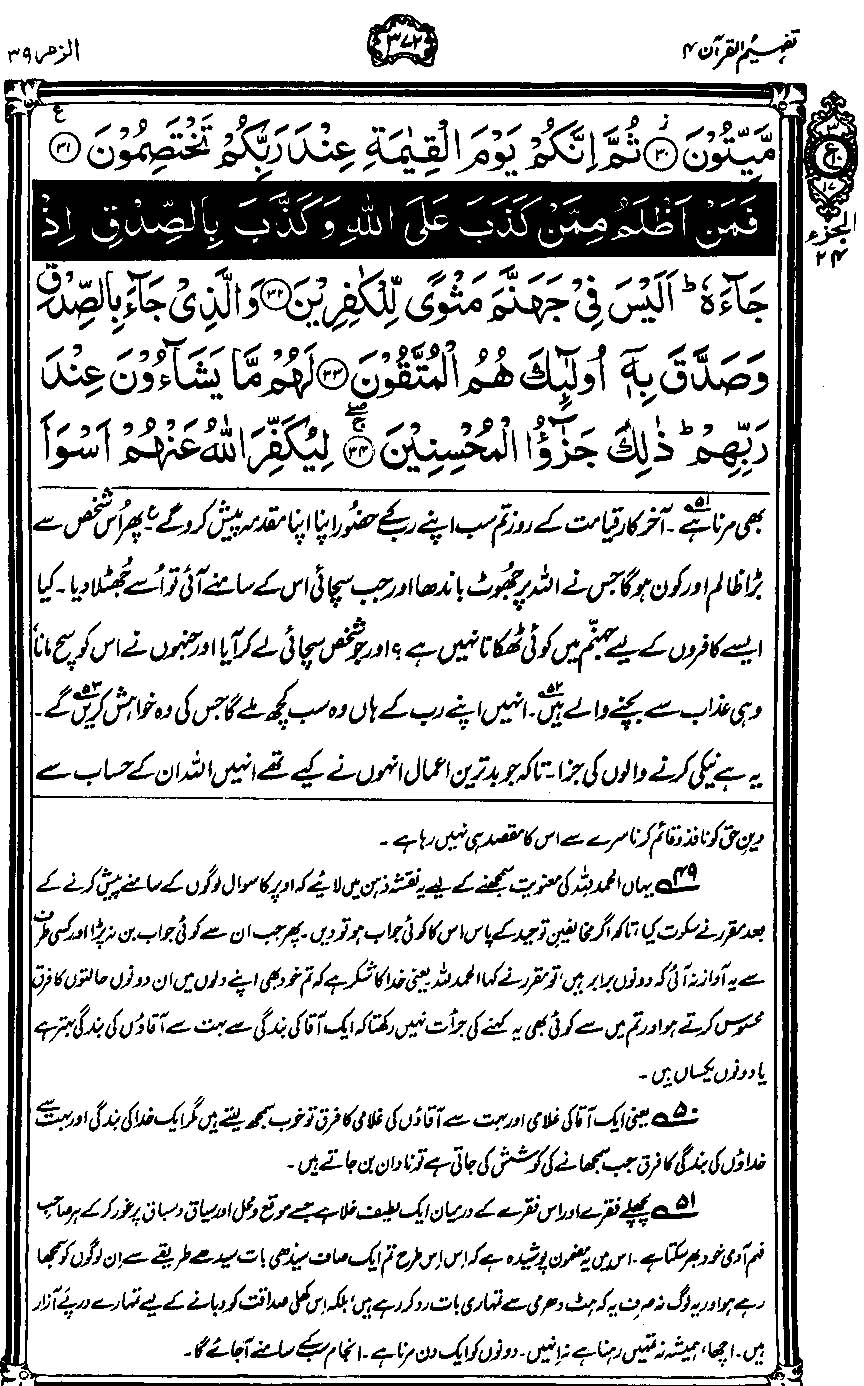 تفہیم القرآن ۴
۳۷۲
الزمر ۳۹
مَّيِّتُوْنَ ﴿۳۰﴾ ثُمَّ اِنَّكُمْ يَوْمَ الْقِيٰمَةِ عِنْدَ رَبِّكُمْ تَخْتَصِمُوْنَ ﴿۳۱﴾
فَمَنْ اَظْلَمُ مِمَّنْ كَذَبَ عَلَى اللّٰهِ وَكَذَّبَ بِالصِّدْقِ اِذْ
جَآءَهٗ ؕ اَلَيْسَ فِيْ جَهَنَّمَ مَثْوًى لِّلْكٰفِرِيْنَ ﴿۳۲﴾ وَالَّذِيْ جَآءَ بِالصِّدْقِ
وَصَدَّقَ بِهٖۤ اُولٰٓئِكَ هُمُ الْمُتَّقُوْنَ ﴿۳۳﴾ لَهُمْ مَّا يَشَآءُوْنَ عِنْدَ
رَبِّهِمْ ؕ ذٰلِكَ جَزٰٓؤُا الْمُحْسِنِيْنَ ﴿۳۴﴾ لِيُكَفِّرَ اللّٰهُ عَنْهُمْ اَسْوَاَ
ع
۳
ع
۱۰
۱۷
الجزء
۲۴
بھی مرنا ہے۵۱۔ آخرکار قیامت کے روز تم سب اپنے رب کے حضور اپنا اپنا مقدمہ پیش کرو گے؏ پھر اُس شخص سے
بڑا ظالم اور کون ہوگا جس نے اللہ پر جھُوٹ باندھا اور جب سچائی اس کے سامنے آئی تو اُسے جُھٹلا دیا۔ کیا
ایسے کافروں کے لیے جہنّم میں کوئی ٹھکانا نہیں ہے؟ اور جو شخص سچائی لے کر آیا اور جنہوں نے اس کو سچ مانا،
وہی عذاب سے بچنے والے ہیں۵۲۔ انہیں اپنے رب کے ہاں وہ سب کچھ ملے گا جس کی وہ خواہش کریں گے۵۳۔
یہ ہے نیکی کرنے والوں کی جزا۔ تاکہ جو بدترین اعمال انہوں نے کیے تھے انہیں اللہ ان کے حساب سے
دینِ حق کو نافذ و قائم کرنا سرے سے اس کا مقصد ہی نہیں رہا ہے۔
۴۹ یہاں الحمد للہ کی معنویت سمجھنے کے لیے یہ نقشہ ذہن میں لائیے کہ اوپر کا سوال لوگوں کے سامنے پیش کرنے کے
بعد مقرر نے سکوت کیا، تاکہ اگر مخالفینِ توحید کے پاس اس کا کوئی جواب ہو تو دیں۔ پھر جب ان سے کوئی جواب بن نہ پڑا اور کسی طرف
سے یہ آواز نہ آئی کہ دونوں برابر ہیں، تو مقرر نے کہا الحمد للہ یعنی خدا کا شکر ہے کہ تم خود بھی اپنے دلوں میں ان دونوں حالتوں کا فرق
محسوس کرتے ہو اور تم میں سے کوئی بھی یہ کہنے کی جرأت نہیں رکھتا کہ ایک آقا کی بندگی سے بہت سے آقاؤں کی بندگی بہتر ہے
یا دونوں یکساں ہیں۔
۵۰ یعنی ایک آقا کی غلامی اور بہت سے آقاؤں کی غلامی کا فرق تو خوب سمجھ لیتے ہیں مگر ایک خدا کی بندگی اور بہت سے
خداؤں کی بندگی کا فرق جب سمجھانے کی کوشش کی جاتی ہے تو نادان بن جاتے ہیں۔
۵۱ پچھلے فقرے اور اس فقرے کے درمیان ایک لطیف خلا ہے جسے موقع و محل اور سیاق و سباق پر غور کر کے ہر صاحب
فہم آدمی خود بھر سکتا ہے۔ اس میں یہ مضمون پوشیدہ ہے کہ اِس اِس طرح تم ایک صاف سیدھی بات سیدھے طریقے سے اِن لوگوں کو سمجھا
رہے ہو اور یہ لوگ نہ صرف یہ کہ ہٹ دھرمی سے تمہاری بات رد کر رہے ہیں، بلکہ اِس کھلی صداقت کو دبانے کے لیے تمہارے درپئے آزار
ہیں۔ اچھا، ہمیشہ نہ تمہیں رہنا ہے نہ انہیں۔ دونوں کو ایک دن مرنا ہے۔ انجام سب کے سامنے آجائے گا۔